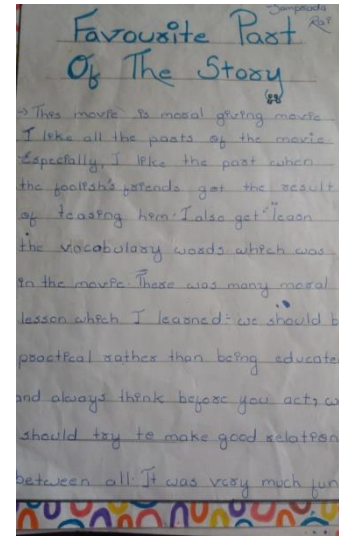 Sampada
Rai
Favourite Part
Of The Story
→ This movie is moral giving movie
I like all the parts of the movie
Especially, I like the part when
the foolish's friends get the result
of teasing him. I also get learn
the vocabulary words which was
in the movie. There was many moral
lesson which I learned:- we should b
practical rather than being educate
and always think before you act, w
should try to make good relation
between all. It was very much fun